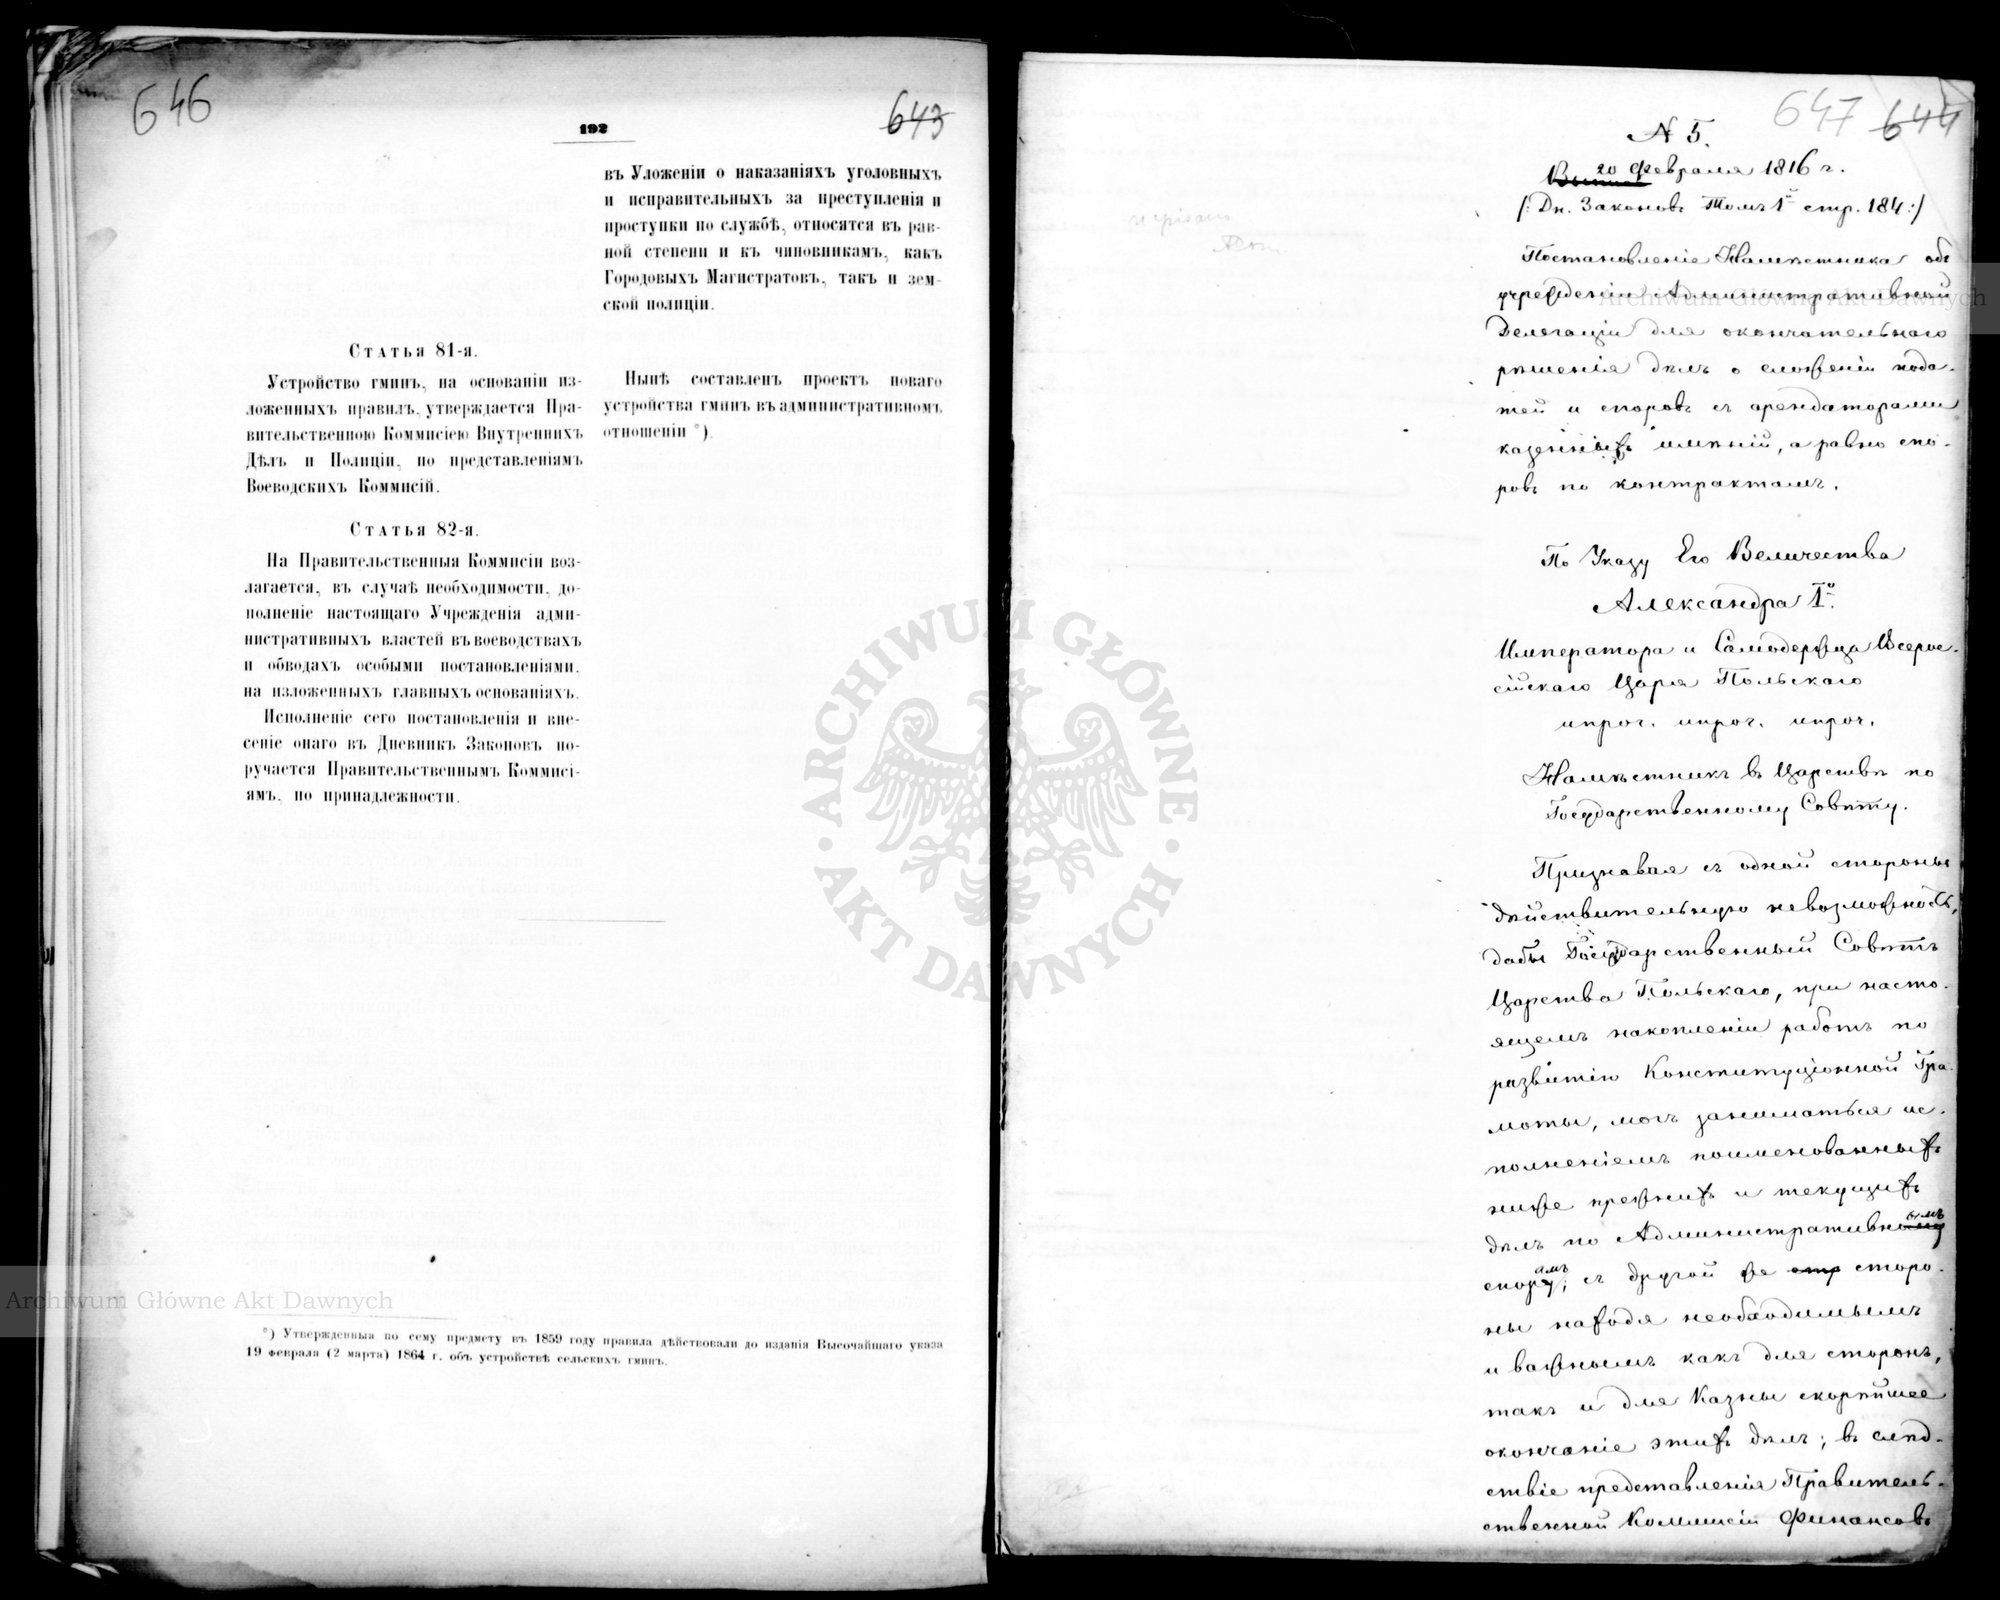 646
643
192
въ Уложеніи о наказаніяхъ уголовныхъ
и исправительныхъ за преступленія и
проступки по службѣ, относятся въ рав-
ной степени и къ чиновникамъ, какъ
Городовыхъ Магистратовъ, такъ и зем-
ской полиціи.
Статья 81-я.
Устройство гминъ, на основаніи из-
ложенныхъ правилъ, утверждается Пра-
вительственною Коммисіею Внутреннихъ
Дѣлъ и Полиціи, по представленіямъ
Воеводскихъ Коммисій.
Нынѣ составленъ проектъ новаго
устройства гминъ въ административномъ
отношеніи *).
Статья 82-я.
На Правительственныя Коммисіи воз-
лагается, въ случаѣ необходимости, до-
полненіе настоящаго Учрежденія адми-
нистративныхъ властей въ воеводствахъ
и обводахъ особыми постановленіями,
на изложенныхъ главныхъ основаніяхъ.
Исполненіе сего постановленія и вне-
сеніе онаго въ Дневникъ Законовъ по-
ручается Правительственнымъ Коммисі-
ямъ, по принадлежности.
*) Утвержденныя по сему предмету въ 1859 году правила дѣйствовали до изданія Высочайшаго указа
19 февраля (2 марта) 1864 г. объ устройствѣ сельскихъ гминъ.
647 644
N 5.
20 Февраля 1816 г.
/: Дн. Законовъ Томъ 1й стр. 184 :/
Постановленіе Намѣстника объ
учрежденіи Административной
Делегаціи для окончательнаго
рѣшенія дѣлъ о сложеніи пода-
тей и споровъ съ арендаторами
казенныхъ имѣній, а равно спо-
ровъ по контрактамъ.
По Указу Его Величества
Александра Iго
Императора и Самодержца Всерос-
сійскаго Царя Польскаго
ипроч. ипроч. ипроч.
Намѣстникъ въ Царствѣ по
Государственному Совѣту.
Признавая съ одной стороны
дѣйствительную невозможность,
дабы Государственный Совѣтъ
Царства Польскаго, при насто-
ящемъ накопленіи работъ по
развитію Конституціонной Гра-
моты, могъ заниматься ис-
полненіемъ поименованныхъ
ниже прежнихъ и текущихъ
дѣлъ по Административнымъ
спорамъ, съ другой же стр сторо-
ны находя необходимымъ
и важнымъ какъ для сторонъ,
такъ и для Казны скорѣйшее
окончаніе этихъ дѣлъ; въ слѣд-
ствіе представленія Правитель-
ственной Коммисіи Финансовъ
Archiwum Główne Akt Dawnych
Archiwum Główne Akt Dawnych
ARCHIWUM GŁÓWNE
AKT DAWNYCH